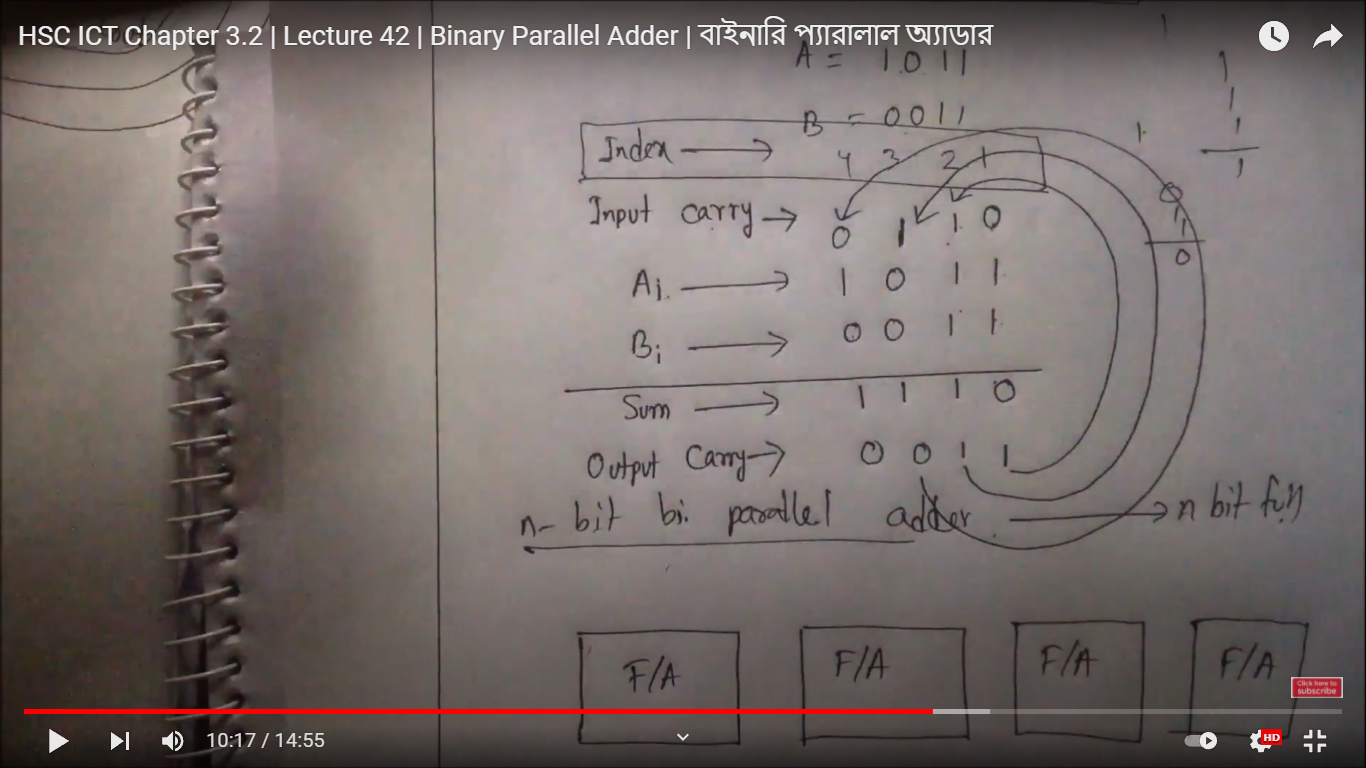 HSC ICT Chapter 3.2 | Lecture 42 | Binary Parallel Adder | বাইনারি প্যারালাল অ্যাডার
A = 1 0 1 1
B = 0 0 1 1
Index → 4 3 2 1
Input carry → 0 1 1 0
Ai → 1 0 1 1
Bi → 0 0 1 1
Sum → 1 1 1 0
Output Carry → 0 0 1 1
1
1
1
1
1
1
0
1
1
0
n- bit bi. parallel adder → n bit full
F/A F/A F/A F/A
Click here to
subscribe
10:17 / 14:55
HD